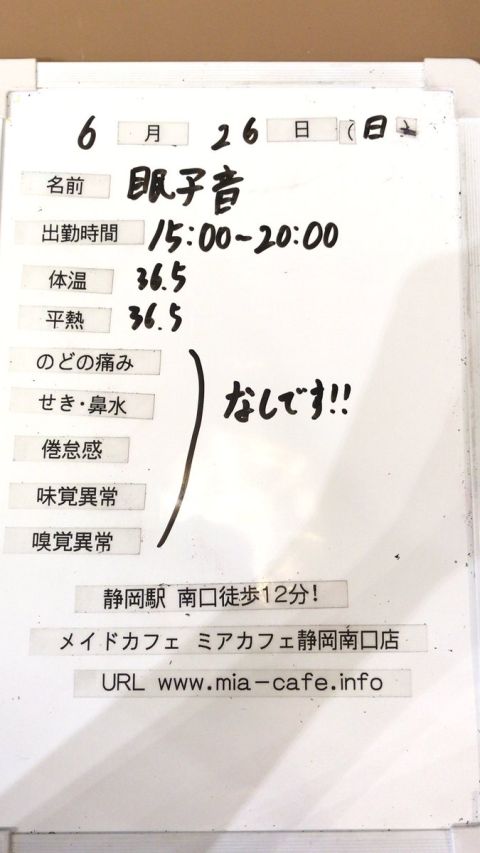 6 月 26 日 (日)
名前 眼子音
出勤時間 15:00~20:00
体温 36.5
平熱 36.5
のどの痛み
せき・鼻水 なしです!!
倦怠感
味覚異常
嗅覚異常
静岡駅 南口徒歩12分!
メイドカフェ ミアカフェ静岡南口店
URL www.mia-cafe.info